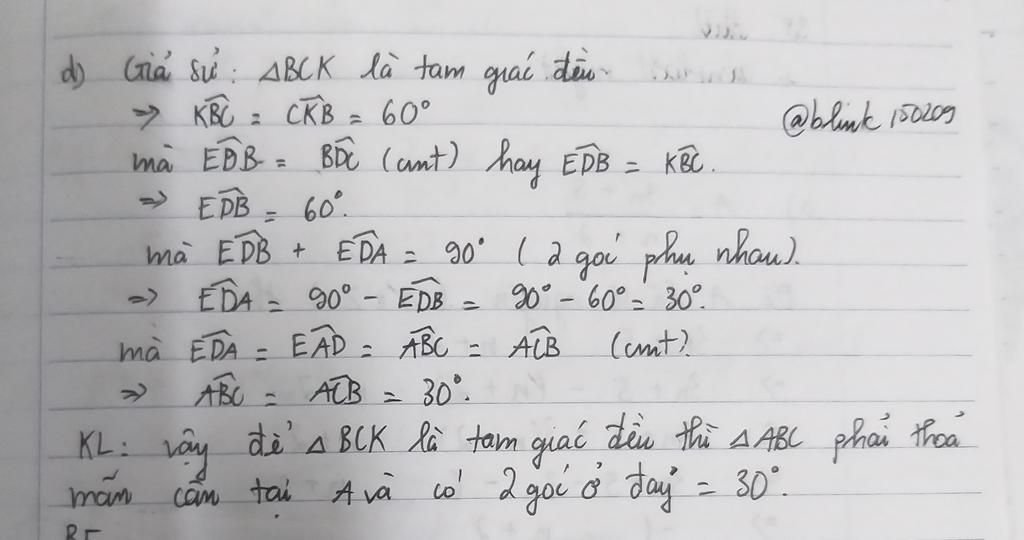 d) Giả sử: △BCK là tam giác đều.
=> KB̂C = CK̂B = 60°
@blink 150209
mà ED̂B = BD̂C (cmt) hay ED̂B = KB̂C.
=> ED̂B = 60°.
mà ED̂B + ED̂A = 90° (2 góc phụ nhau).
=> ED̂A = 90° - ED̂B = 90° - 60° = 30°.
mà ED̂A = EÂD = AB̂C = AĈB (cmt).
=> AB̂C = AĈB = 30°.
KL: vậy để △BCK là tam giác đều thì △ABC phải thoả
mãn cân tại A và có 2 góc ở đáy = 30°.